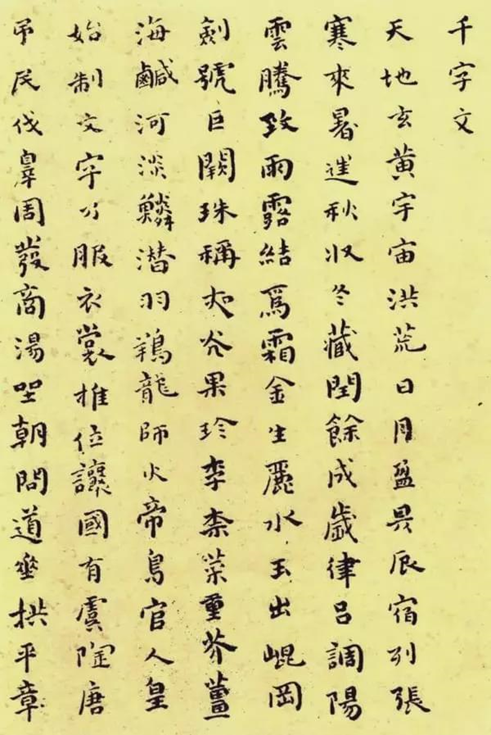 千字文
天地玄黃宇宙洪荒日月盈昃辰宿列張
寒來暑往秋収冬藏閏餘成歲律呂調陽
雲騰致雨露結爲霜金生麗水玉出崐岡
劍號巨闕珠稱夜光果珍李柰菜重芥薑
海鹹河淡鱗潜羽翔龍師火帝鳥官人皇
始制文字乃服衣裳推位讓國有虞陶唐
弔民伐辠周發商湯坐朝問道垂拱平章